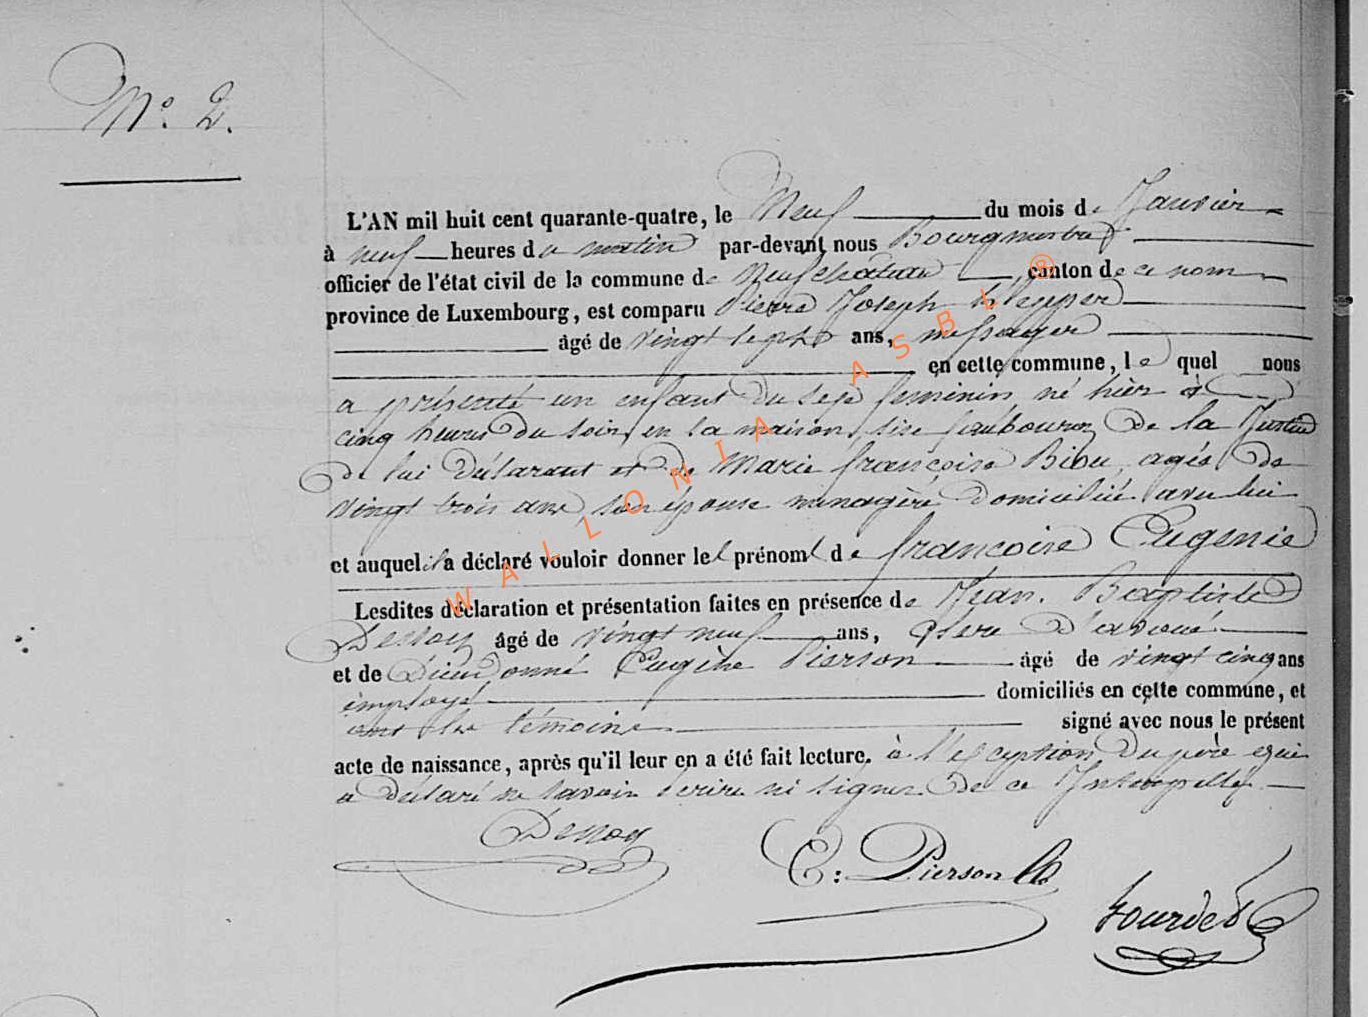 N° 2.
L'AN mil huit cent quarante-quatre, le Neuf du mois de Janvier
à neuf heures du matin par-devant nous Bourgmestre
officier de l'état civil de la commune de Neufchateau canton de ce nom
province de Luxembourg, est comparu Pierre Joseph
âgé de vingt sept ans, messager
en cette commune, lequel nous
a présenté un enfant du sexe feminin né hier à
cinq heures du soir, en la maison, sise faubourg de la Justice
de lui déclarant et de Marie françoise Bibu, agée de
vingt trois ans son épouse ménagère domiciliée avec lui
et auquel il a déclaré vouloir donner les prénoms de françoise Eugenie
Lesdites déclaration et présentation faites en présence de Jean Baptiste
Dessoy âgé de vingt neuf ans, clerc d'avoué
et de Dieudonné Eugène Pierson âgé de vingt cinq ans
employé domiciliés en cette commune, et
ont les témoins signé avec nous le présent
acte de naissance, après qu'il leur en a été fait lecture. à l'exception du père qui
a déclaré ne savoir écrire ni signer de ce Interpellé
Dessoy
E: Pierson
Hourdet
WALLONIA ASBL ®